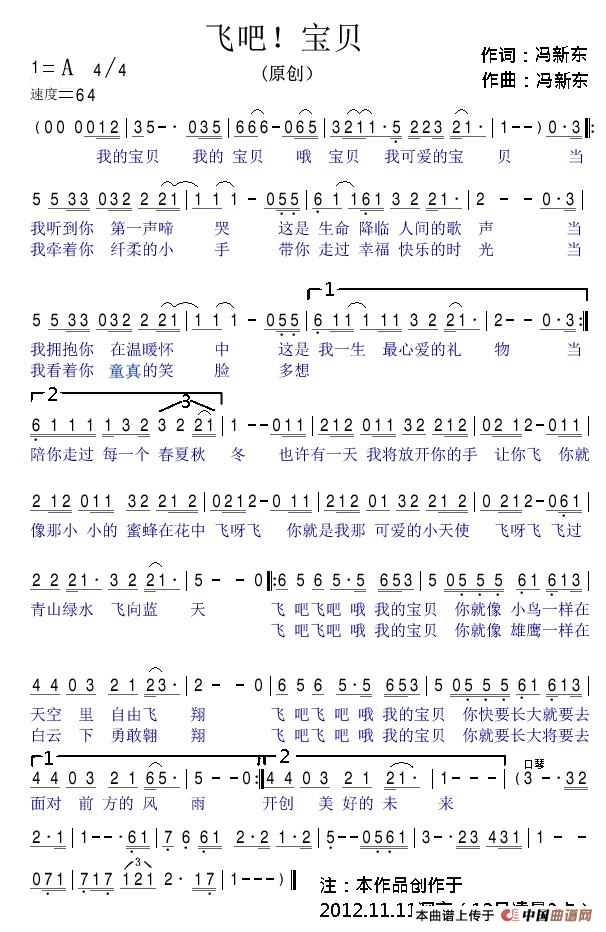 飞吧！宝贝
(原创）
作词：冯新东
作曲：冯新东
1= A 4/4
速度=64
(00 0012 | 35-· 035 | 666-065 | 3211·5 223 21· | 1--) 0·3 ‖:
我的宝贝 我的 宝贝 哦 宝贝 我可爱的宝 贝 当
5 5 33 032 2 21 | 1 1 1 - 055 | 61 161 3 2 21· | 2 - 0·3 |
我听到你 第一声啼 哭 这是 生命 降临 人间的歌 声 当
我牵着你 纤柔的小 手 带你 走过 幸福 快乐的时 光 当
1
5 5 33 032 2 21 | 1 1 1 - 055 | 6 11 1 11 3 2 21· | 2-- 0·3 :‖
我拥抱你 在温暖怀 中 这是 我一生 最心爱的礼 物 当
我看着你 童真的笑 脸 多想
2
3
6 1 1 1 1 3 2 3 2 21 | 1--011 | 212 011 32 212 | 02 12-011 |
陪你走过 每一个 春夏秋 冬 也许有一天 我将放开你的手 让你飞 你就
2 12 011 32 21 2 | 0212-0 11 | 212 01 32 21 2 | 212-061 |
像那小 小的 蜜蜂在花中 飞呀飞 你就是我那 可爱的小天使 飞呀飞 飞过
2 2 21· 3 2 21· | 5 - - 0 ‖: 6 5 6 5·5 653 | 5 0555 61 613 |
青山绿水 飞向蓝 天 飞 吧飞吧 哦 我的宝贝 你就像 小鸟一样在
飞 吧飞吧 哦 我的宝贝 你就像 雄鹰一样在
4 4 0 3 2 21 23· | 2 - - 0 | 6 5 6 5·5 653 | 5 05 55 61 613 |
天空 里 自由飞 翔 飞 吧飞 吧 哦 我的宝贝 你快要长大就要去
白云 下 勇敢翱 翔 飞 吧飞 吧 哦 我的宝贝 你就要长大将要去
1
2
口琴
4 4 0 3 2 1 65· | 5 - - 0 :‖ 4 4 0 3 2 1 21· | 1 - - - | (3 -·32
面对 前 方的 风 雨 开创 美 好的 未 来
2·1 | 1--·61 | 7 6 61 2·2 1·2 | 5--0561 | 3-·23 431 | 1--·
3
071 | 717 121 2·17· | 1---) ‖
注：本作品创作于
2012.11.11
本曲谱上传于 中国曲谱网